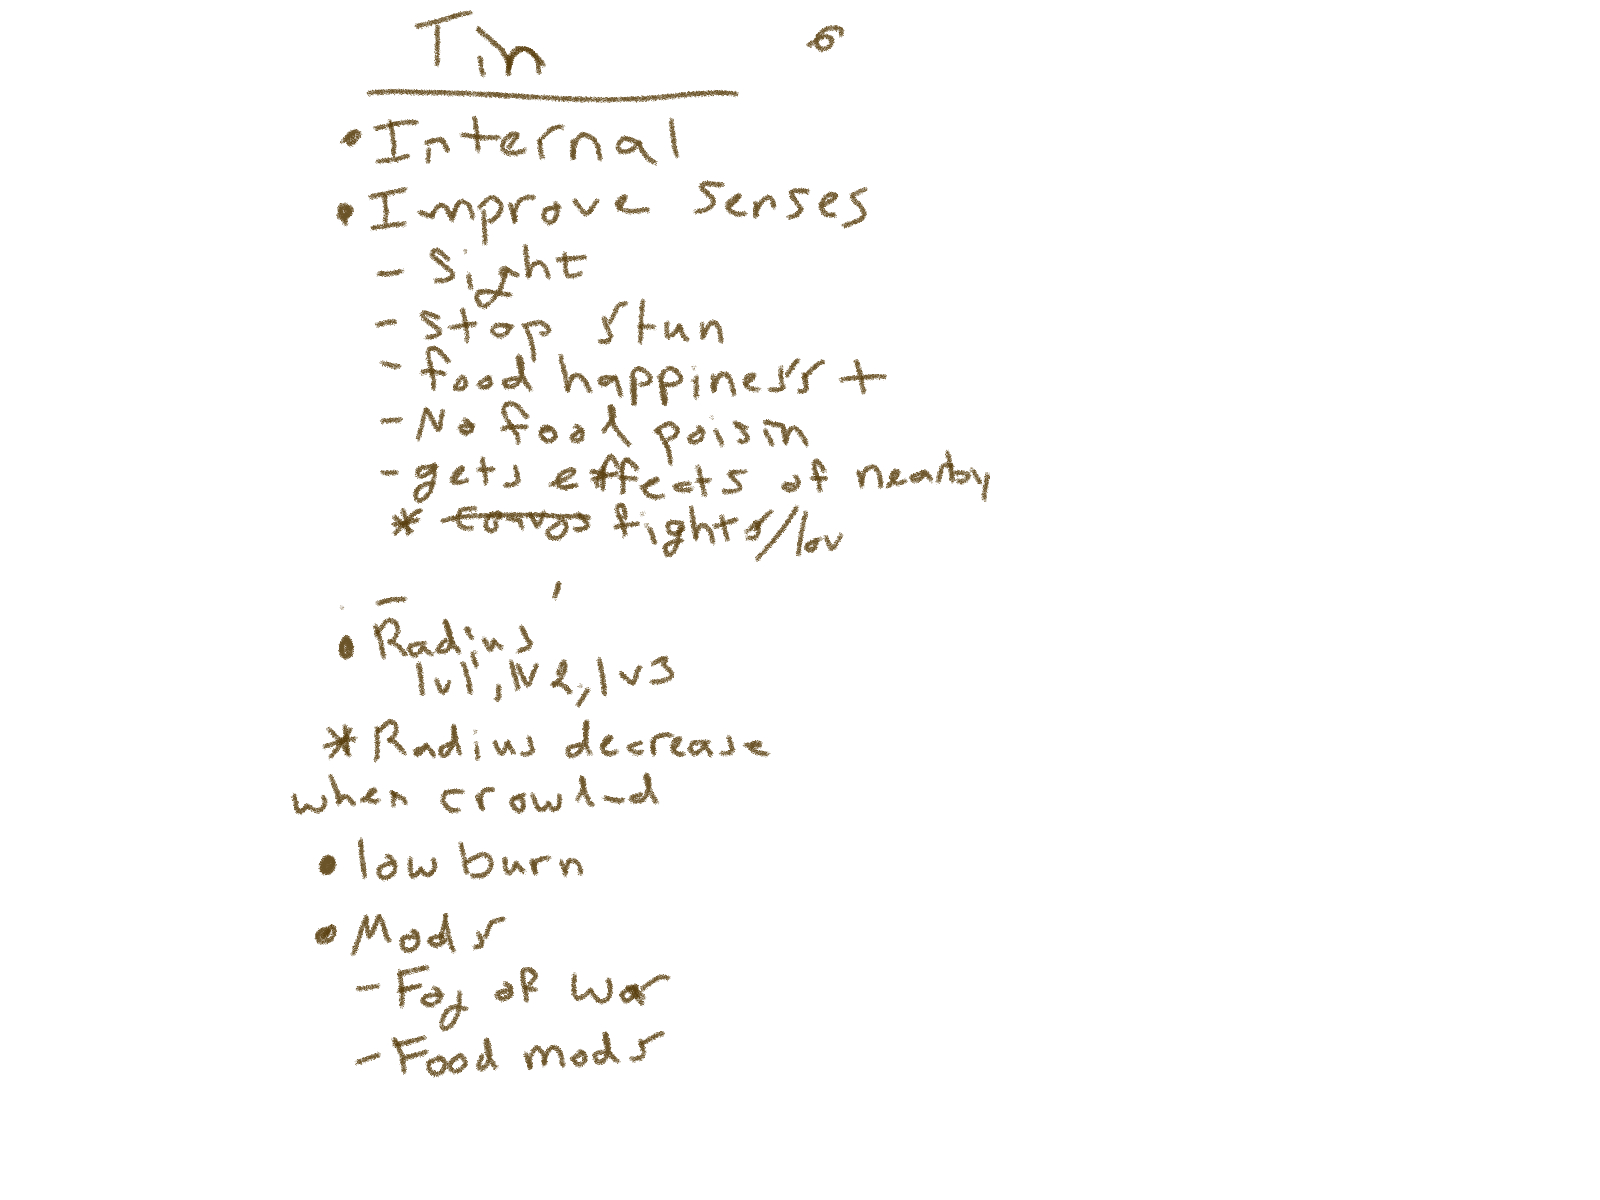 Tin 6
• Internal
• Improve senses
- Sight
- stop stun
- food happiness +
- No food poisin
- gets effects of nearby
* fights/lov
-
• Radius
lv1, lv2, lv3
* Radius decrease
when crowd-d
• low burn
• Mods
- Fog of war
- Food mods